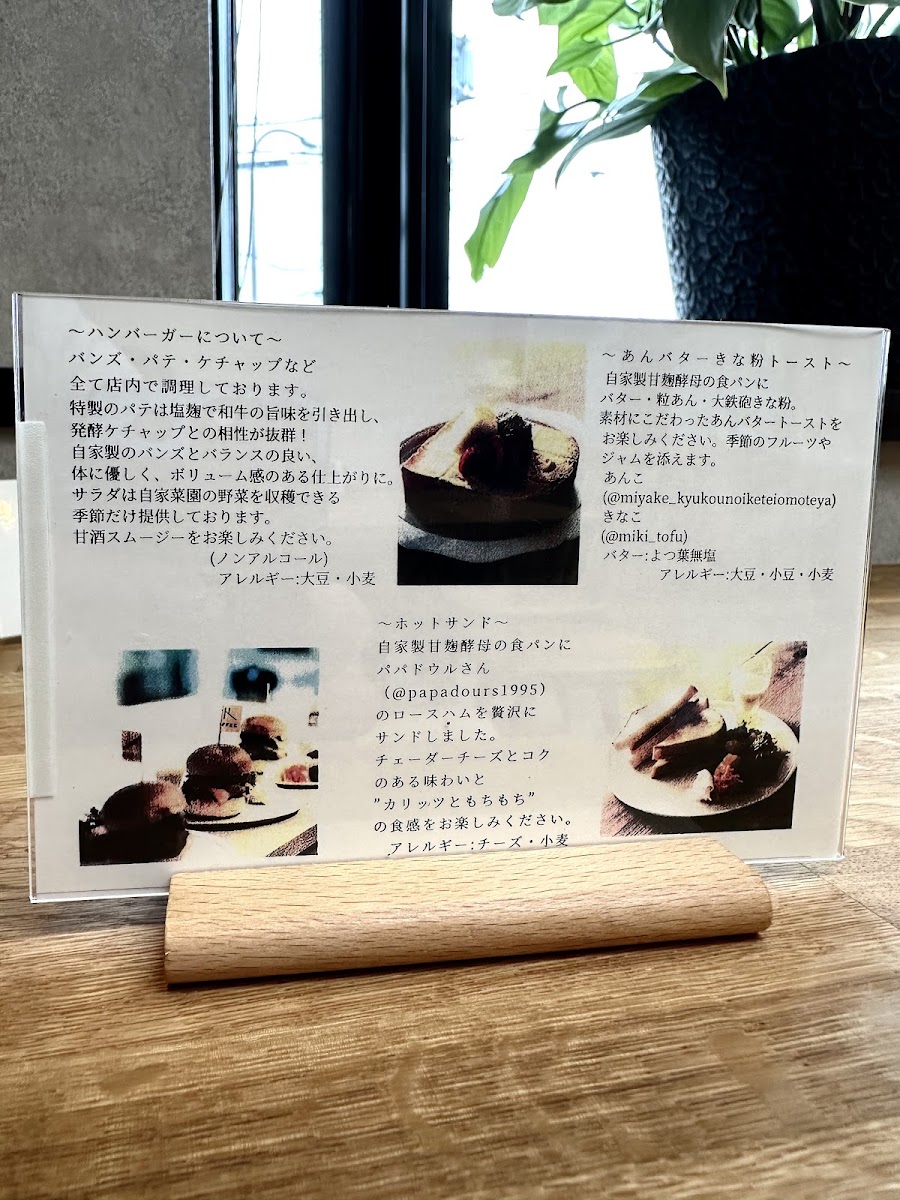 ～ハンバーガーについて～
バンズ・パテ・ケチャップなど
全て店内で調理しております。
特製のパテは塩麹で和牛の旨味を引き出し、
発酵ケチャップとの相性が抜群！
自家製のバンズとバランスの良い、
体に優しく、ボリューム感のある仕上がりに。
サラダは自家菜園の野菜を収穫できる
季節だけ提供しております。
甘酒スムージーをお楽しみください。
(ノンアルコール)
アレルギー:大豆・小麦
～あんバターきな粉トースト～
自家製甘麹酵母の食パンに
バター・粒あん・大鉄砲きな粉。
素材にこだわったあんバタートーストを
お楽しみください。季節のフルーツや
ジャムを添えます。
あんこ
(@miyake_kyukounoiketeiomoteya)
きなこ
(@miki_tofu)
バター:よつ葉無塩
アレルギー:大豆・小豆・小麦
～ホットサンド～
自家製甘麹酵母の食パンに
パパドウルさん
（@papadours1995）
のロースハムを贅沢に
サンドしました。
チェーダーチーズとコク
のある味わいと
”カリッツともちもち”
の食感をお楽しみください。
アレルギー:チーズ・小麦